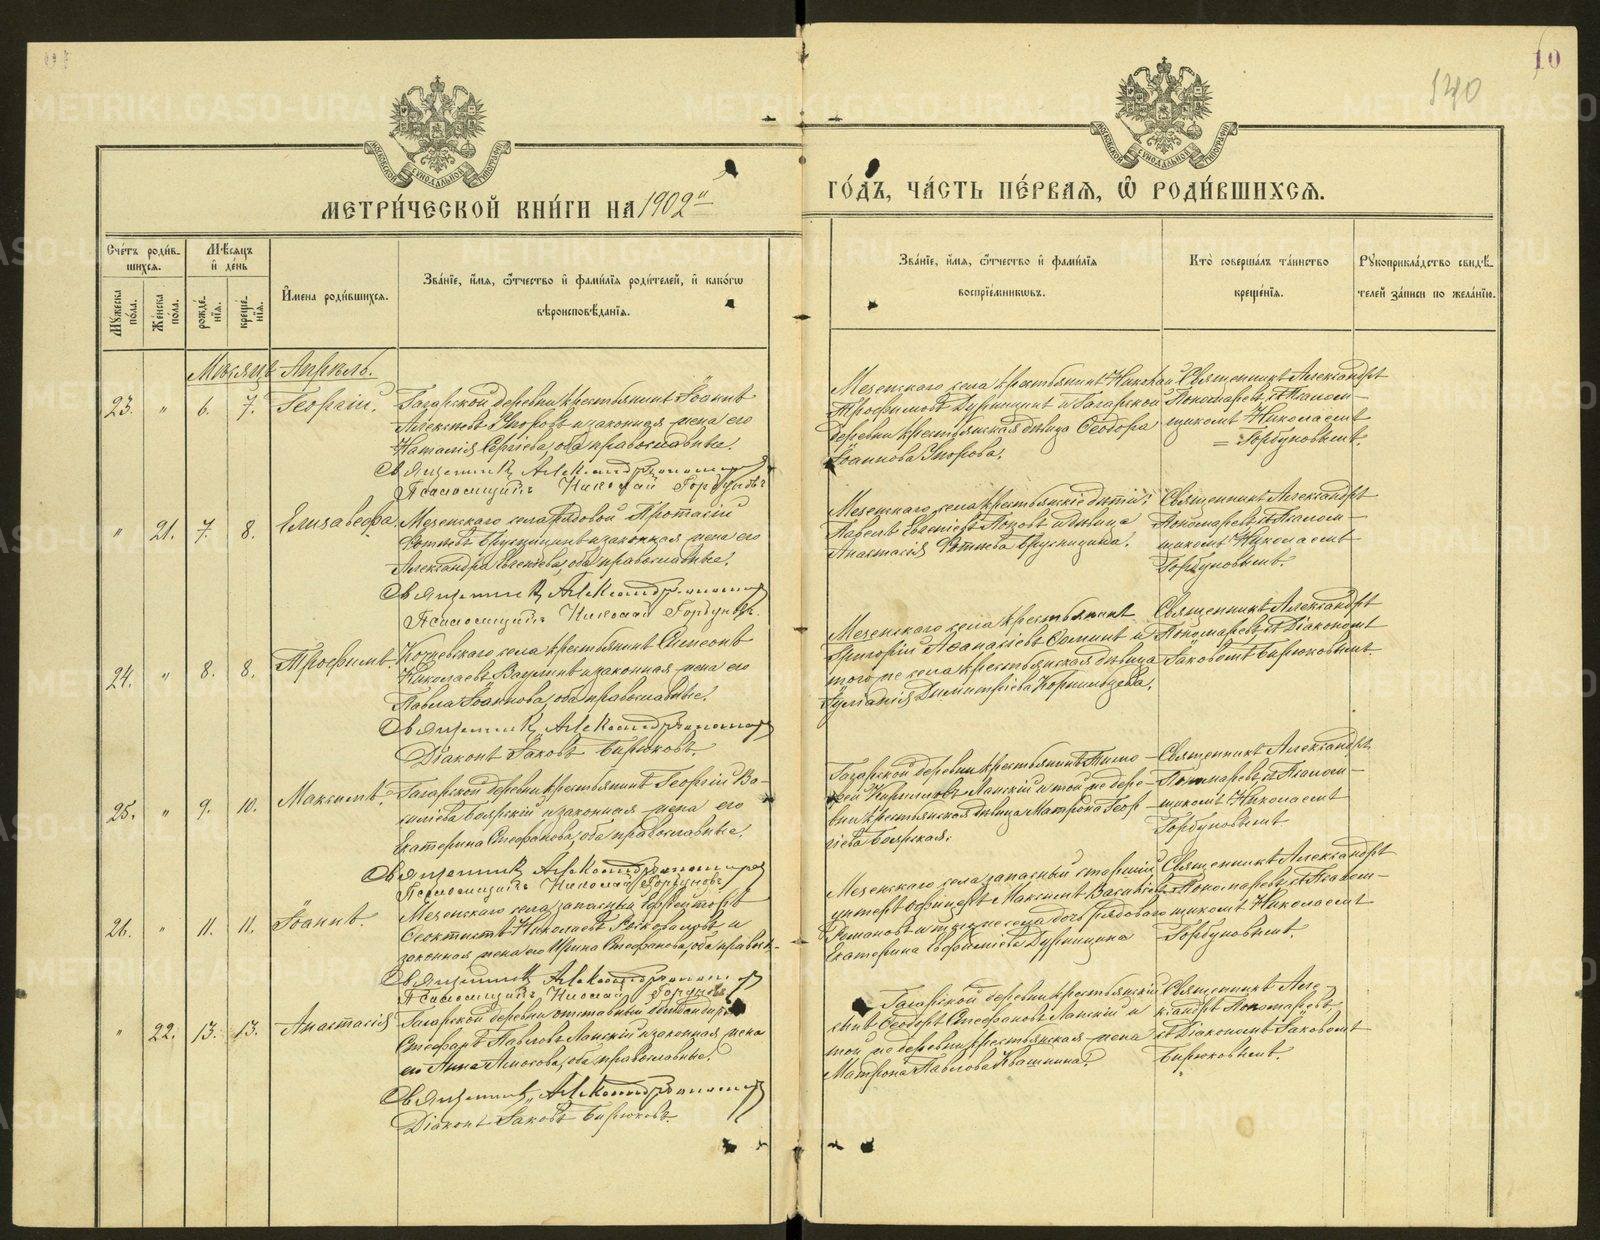 10
140
МОСКОВСКОЙ СѴНОДАЛЬНОЙ ТИПОГРАФІИ
МОСКОВСКОЙ СѴНОДАЛЬНОЙ ТИПОГРАФІИ
МЕТРИ́ЧЕСКОЙ КНИ́ГИ НА 1902й
ГО́ДЪ, ЧА́СТЬ ПЕ́РВАѦ, Ѽ РОДИ́ВШИХСѦ.
Сче́тъ роди́в-
шихсѧ.
Мꙋжеска по́ла.
Же́нска по́ла.
Мѣ́сѧцъ
и҆ де́нь
рожде́нїѧ.
креще́нїѧ.
И҆мена роди́вшихсѧ.
Зва́нїе, и҆́мѧ, ѻ҆́тчество и҆ фами́лїѧ роди́телей, и҆ како́гѡ
вѣроисповѣ́данїѧ.
Зва́нїе, и҆́мѧ, ѻ҆́тчество и҆ фами́лїѧ
воспрїе́мникѡвъ.
Кто̀ соверша́лъ та́инство
креще́нїѧ.
Рꙋкоприкла́дство свидѣ́-
телей за́писи по жела́нїю.
Мѣсяцъ Апрѣль.
23. " 6. 7. Георгій.
Гагарской деревни крестьянинъ Іоаннъ
Алексѣевъ Упоровъ и законная жена его
Наталія Сергіева, оба православные.
Священникъ Александръ Пономаревъ
Псаломщикъ Николай Горбуновъ
Мезенскаго села крестьянинъ Николай
Трофимовъ Дурницинъ и Гагарской
деревни крестьянская дѣвица Ѳеодора
Іоаннова Упорова.
Священникъ Александръ
Пономаревъ съ Псалом-
щикомъ Николаемъ
Горбуновымъ.
" 21. 7. 8. Елизавета.
Мезенскаго села рядовой Протасій
Фотіевъ Брусницинъ и законная жена его
Александра Евгеніева, оба православные.
Священникъ Александръ Пономаревъ
Псаломщикъ Николай Горбуновъ.
Мезенскаго села крестьянскіе дѣти:
Павелъ Поповъ и дѣвица
Анастасія Фотіева Брусницина.
Священникъ Александръ
Пономаревъ съ Псалом-
щикомъ Николаемъ
Горбуновымъ.
24. " 8. 8. Трофимъ.
Кочневскаго села крестьянинъ Симеонъ
Николаевъ Ваулинъ и законная жена его
Павла Іоаннова, оба православные.
Священникъ Александръ Пономаревъ
Діаконъ Іаковъ Бирюковъ.
Мезенскаго села крестьянинъ
Григорій Аѳанасіевъ и
того же села крестьянская дѣвица
Димитріева Корнильцева.
Священникъ Александръ
Пономаревъ съ Діакономъ
Іаковомъ Бирюковымъ.
25. " 9. 10. Максимъ.
Гагарской деревни крестьянинъ Георгій Ва-
силіевъ Боярскій и законная жена его
Екатерина Стефанова, оба православные.
Священникъ Александръ Пономаревъ
Псаломщикъ Николай Горбуновъ
Гагарской деревни крестьянинъ Тимо-
ѳей Кирилловъ Ланскій и той же дере-
вни крестьянская дѣвица Матрона Геор-
гіева Боярская.
Священникъ Александръ
Пономаревъ съ Псалом-
щикомъ Николаемъ
Горбуновымъ
26. " 11. 11. Іоаннъ.
Мезенскаго села запасный ефрейторъ
Ѳеоктистъ Николаевъ и
законная жена его Ирина Стефанова, оба правосл.
Священникъ Александръ Пономаревъ
Псаломщикъ Николай Горбуновъ
Мезенскаго села запасный старшій
унтеръ офицеръ Максимъ Василіевъ
Романовъ и того же села дочь рядоваго
Екатерина Евфиміева Дурницина
Священникъ Александръ
Пономаревъ съ Псалом-
щикомъ Николаемъ
Горбуновымъ.
" 22. 13. 13. Анастасія
Гагарской деревни отставный
Стефанъ Павловъ Ланскій и законная жена
его Анна Амосова, оба православные.
Священникъ Александръ Пономаревъ
Діаконъ Іаковъ Бирюковъ.
Гагарской деревни крестьянскій
сынъ Ѳеодоръ Стефановъ Ланскій и
той же деревни крестьянская жена
Матрона Павлова Квашнина.
Священникъ Алек-
сандръ Пономаревъ
съ Діакономъ Іаковомъ
Бирюковымъ.
METRIKI.GASO-URAL.RU